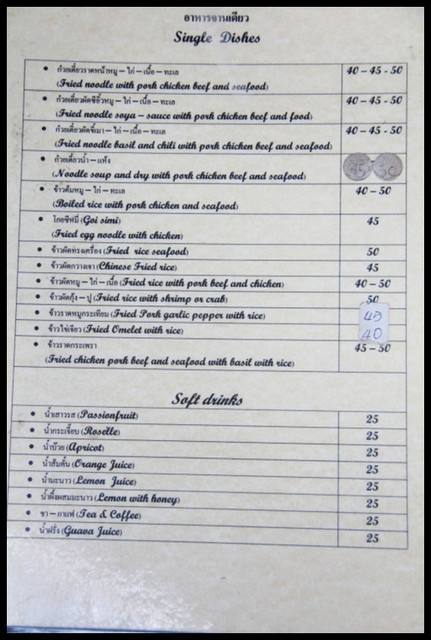 อาหารจานเดียว
Single Dishes
• ก๋วยเตี๋ยวราดหน้าหมู – ไก่ –เนื้อ – ทะเล 40 – 45 - 50
(Fried noodle with pork chicken beef and seafood)
• ก๋วยเตี๋ยวผัดซีอิ๊วหมู – ไก่ –เนื้อ – ทะเล 40 – 45 - 50
(Fried noodle soya – sauce with pork chicken beef and food)
• ก๋วยเตี๋ยวผัดขี้เมา – ไก่ –เนื้อ –ทะเล 40 – 45 - 50
(Fried noodle basil and chili with pork chicken beef and seafood)
• ก๋วยเตี๋ยวน้ำ – แห้ง 45 - 50
(Noodle soup and dry with pork chicken beef and seafood)
• ข้าวต้มหมู – ไก่ – ทะเล 40 – 50
(Boiled rice with pork chicken and seafood)
• โกยซีหมี่ (Goi simi) 45
(Fried egg noodle with chicken)
• ข้าวผัดทรงเครื่อง (Fried rice seafood) 50
• ข้าวผัดกวางเจา (Chinese Fried rice) 45
• ข้าวผัดหมู – ไก่ – เนื้อ (Fried rice with pork beef and chicken) 40 – 50
• ข้าวผัดกุ้ง – ปู (Fried rice with shrimp or crab) 50
• ข้าวราดหมูกระเทียม (Fried Pork garlic pepper with rice) 40
• ข้าวไข่เจียว (Fried Omelet with rice) 40
• ข้าวราดกระเพรา 45 – 50
(Fried chicken pork beef and seafood with basil with rice)
Soft drinks
• น้ำเสาวรส (Passionfruit) 25
• น้ำกระเจี๊ยบ (Roselle) 25
• น้ำบ๊วย (Apricot) 25
• น้ำส้มคั้น (Orange Juice) 25
• น้ำมะนาว (Lemon Juice) 25
• น้ำผึ้งผสมมะนาว (Lemon with honey) 25
• ชา – กาแฟ (Tea & Coffee) 25
• น้ำฝรั่ง (Guava Juice) 25